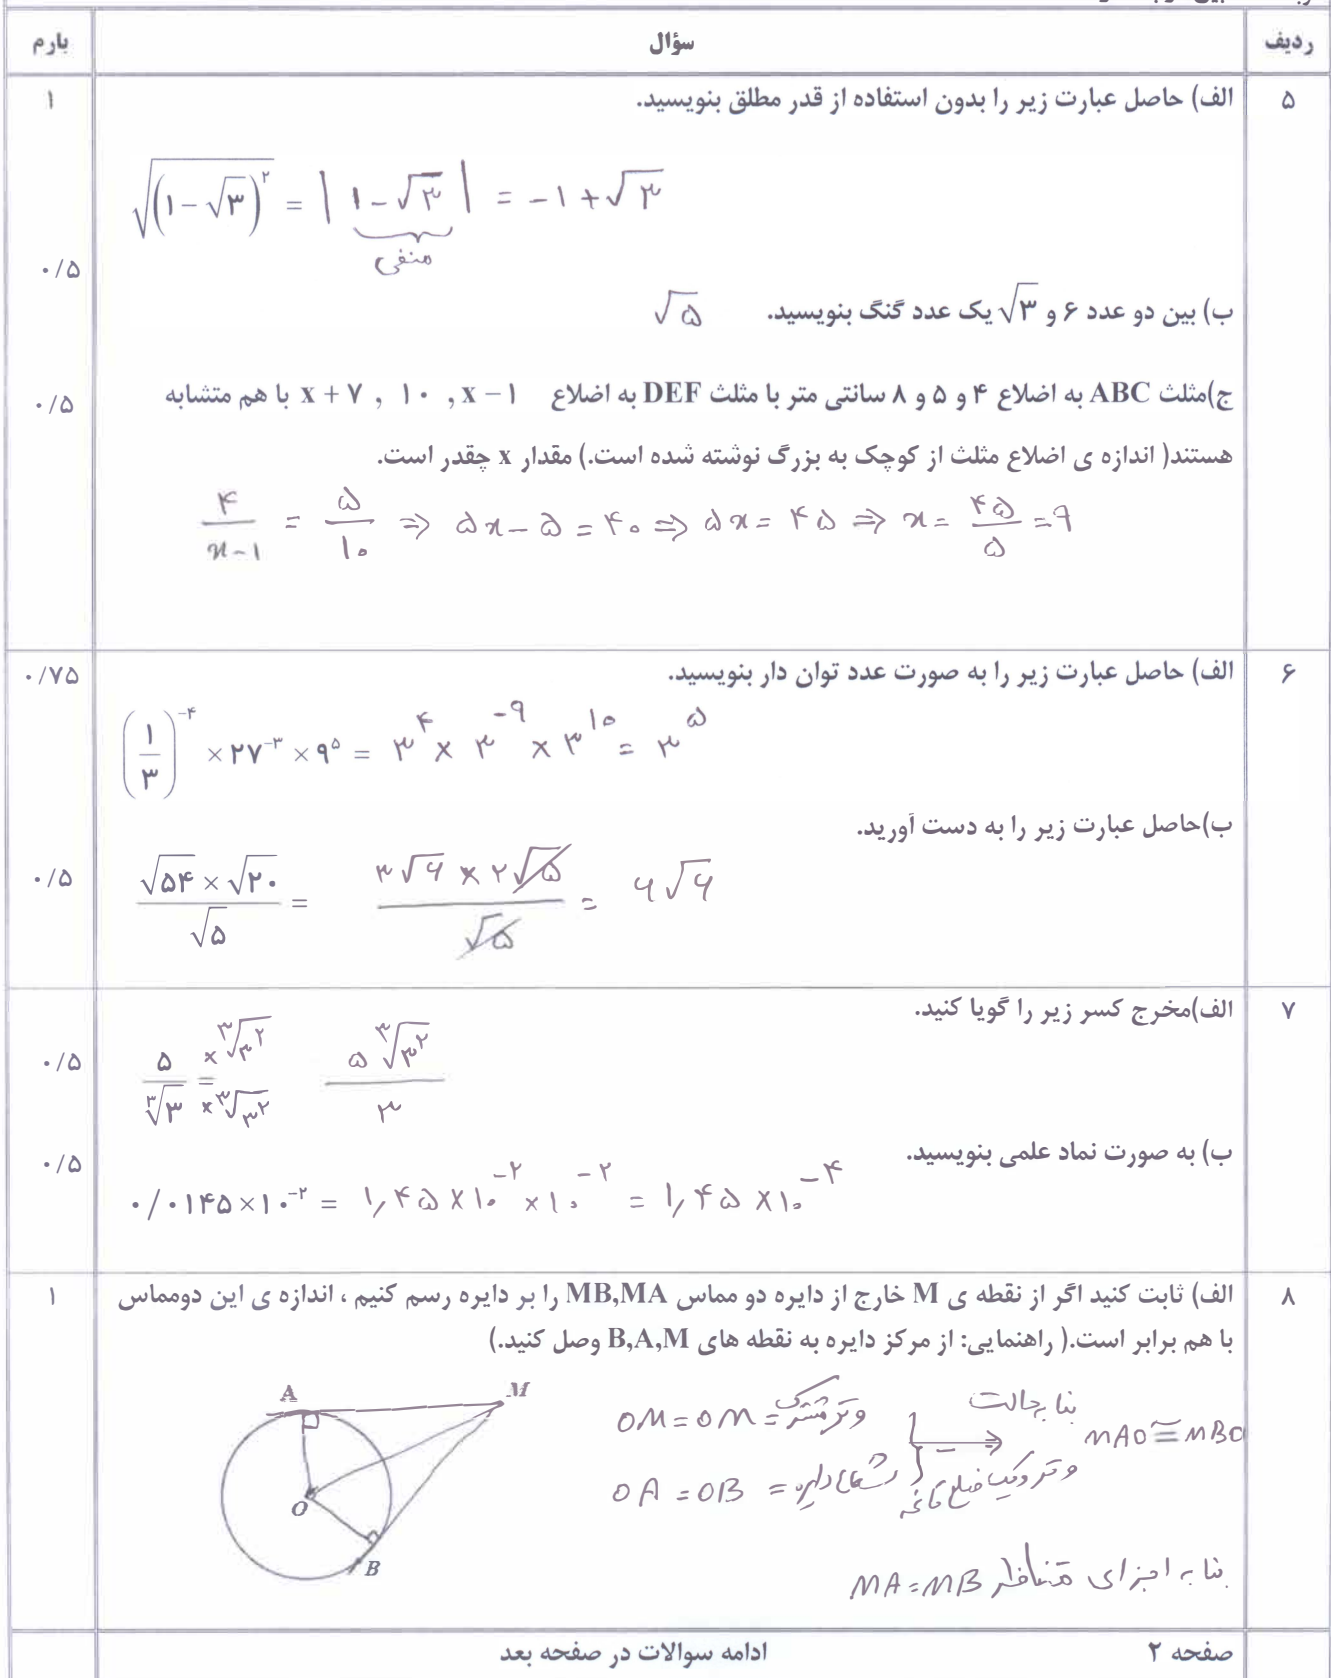 ردیف سؤال بارم
۵ الف) حاصل عبارت زیر را بدون استفاده از قدر مطلق بنویسید. ۱
√((۱-√۳)^۲) = |۱-√۳| = -۱+√۳
منفی
۰/۵
ب) بین دو عدد ۶ و √۳ یک عدد گنگ بنویسید. √۵
ج)مثلث ABC به اضلاع ۴ و ۵ و ۸ سانتی متر با مثلث DEF به اضلاع x + ۷ , ۱۰ , x − ۱ با هم متشابه ۰/۵
هستند( اندازه ی اضلاع مثلث از کوچک به بزرگ نوشته شده است.) مقدار x چقدر است.
۴/(x-۱) = ۵/۱۰ ⇒ ۵x-۵=۴۰ ⇒ ۵x=۴۵ ⇒ x=۴۵/۵=۹
۶ الف) حاصل عبارت زیر را به صورت عدد توان دار بنویسید. ۰/۷۵
(۱/۳)^-۴ × ۲۷^-۳ × ۹^۵ = ۳^۴ × ۳^-۹ × ۳^۱۰ = ۳^۵
ب)حاصل عبارت زیر را به دست آورید.
(√۵۴ × √۲۰)/√۵ = (۳√۶ × ۲√۵)/√۵ = ۶√۶ ۰/۵
۷ الف)مخرج کسر زیر را گویا کنید.
۵/∛۳ = ×∛۳^۲ / ×∛۳^۲ ۵∛۳^۲/۳ ۰/۵
ب) به صورت نماد علمی بنویسید. ۰/۵
۰/۰۱۴۵×۱۰^-۲ = ۱,۴۵×۱۰^-۲×۱۰^-۲ = ۱,۴۵×۱۰^-۴
۸ الف) ثابت کنید اگر از نقطه ی M خارج از دایره دو مماس MB,MA را بر دایره رسم کنیم ، اندازه ی این دومماس ۱
با هم برابر است.( راهنمایی: از مرکز دایره به نقطه های B,A,M وصل کنید.)
A M O B
OM=OM= وتر مشترک
OA=OB= شعاع دایره
بنا به حالت
وتر و یک ضلع قائمه
MAO≅MBO
بنا به اجزای متناظر MA=MB
صفحه ۲ ادامه سوالات در صفحه بعد